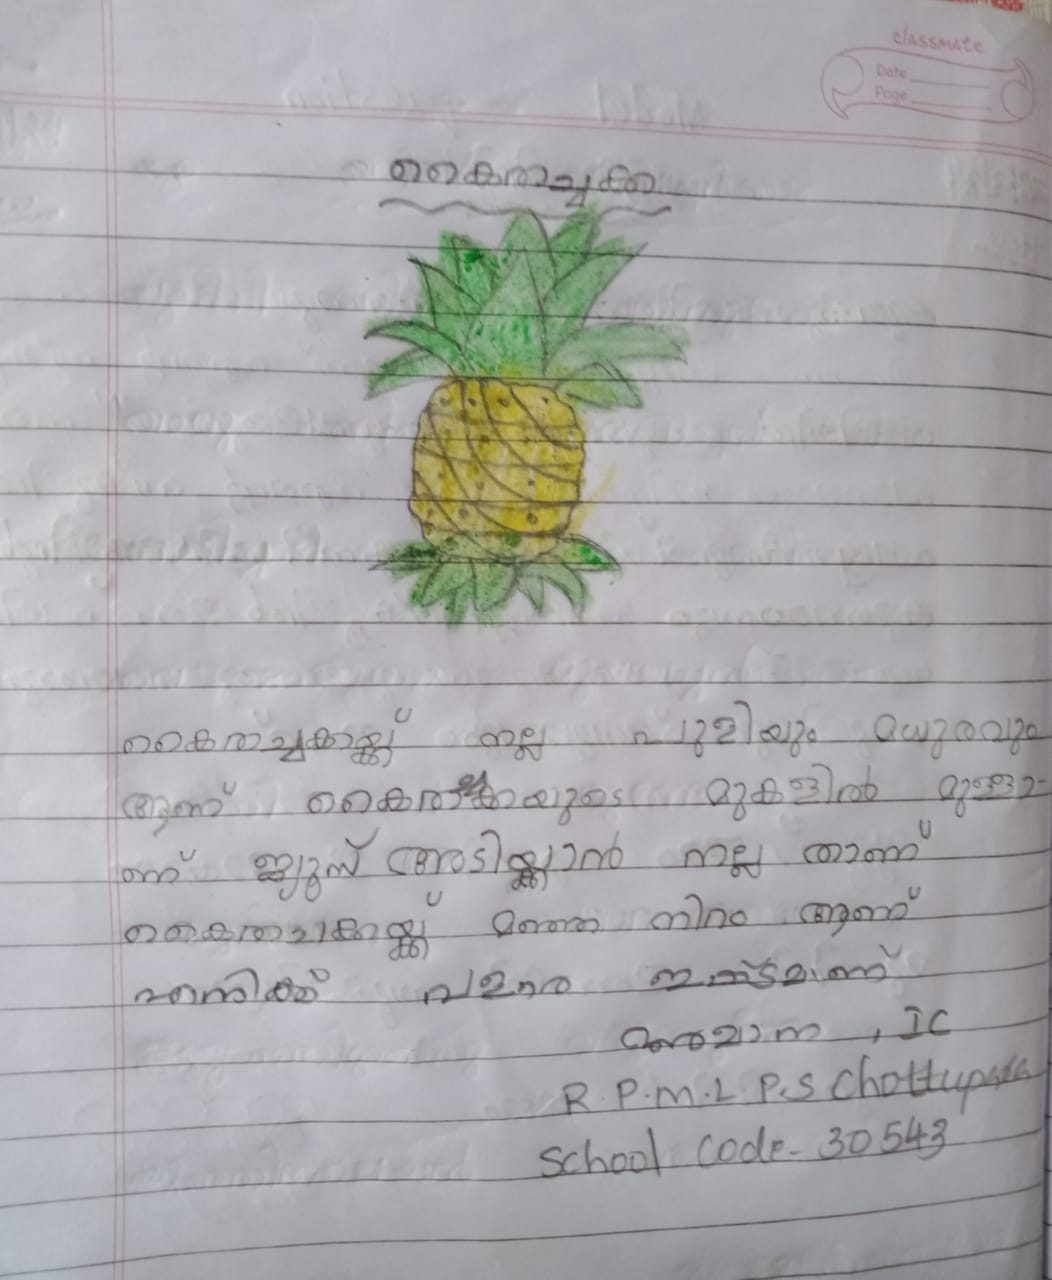 classmate
Date
Page
കൈതച്ചക്ക
കൈതച്ചക്കയ്ക്ക് നല്ല പുളിയും മധുരവും
ആണ് കൈതചക്കയുടെ മുകളിൽ മുള്ളാ-
ണ് ജ്യൂസ് അടിക്കാൻ നല്ല താണ്
കൈതചക്കയ്ക്ക് മഞ്ഞ നിറം ആണ്
എനിക്ക് വളരെ ഇഷ്ടമാണ്
, IC
R.P.M.L.P.S Chottupara
School Code- 30543